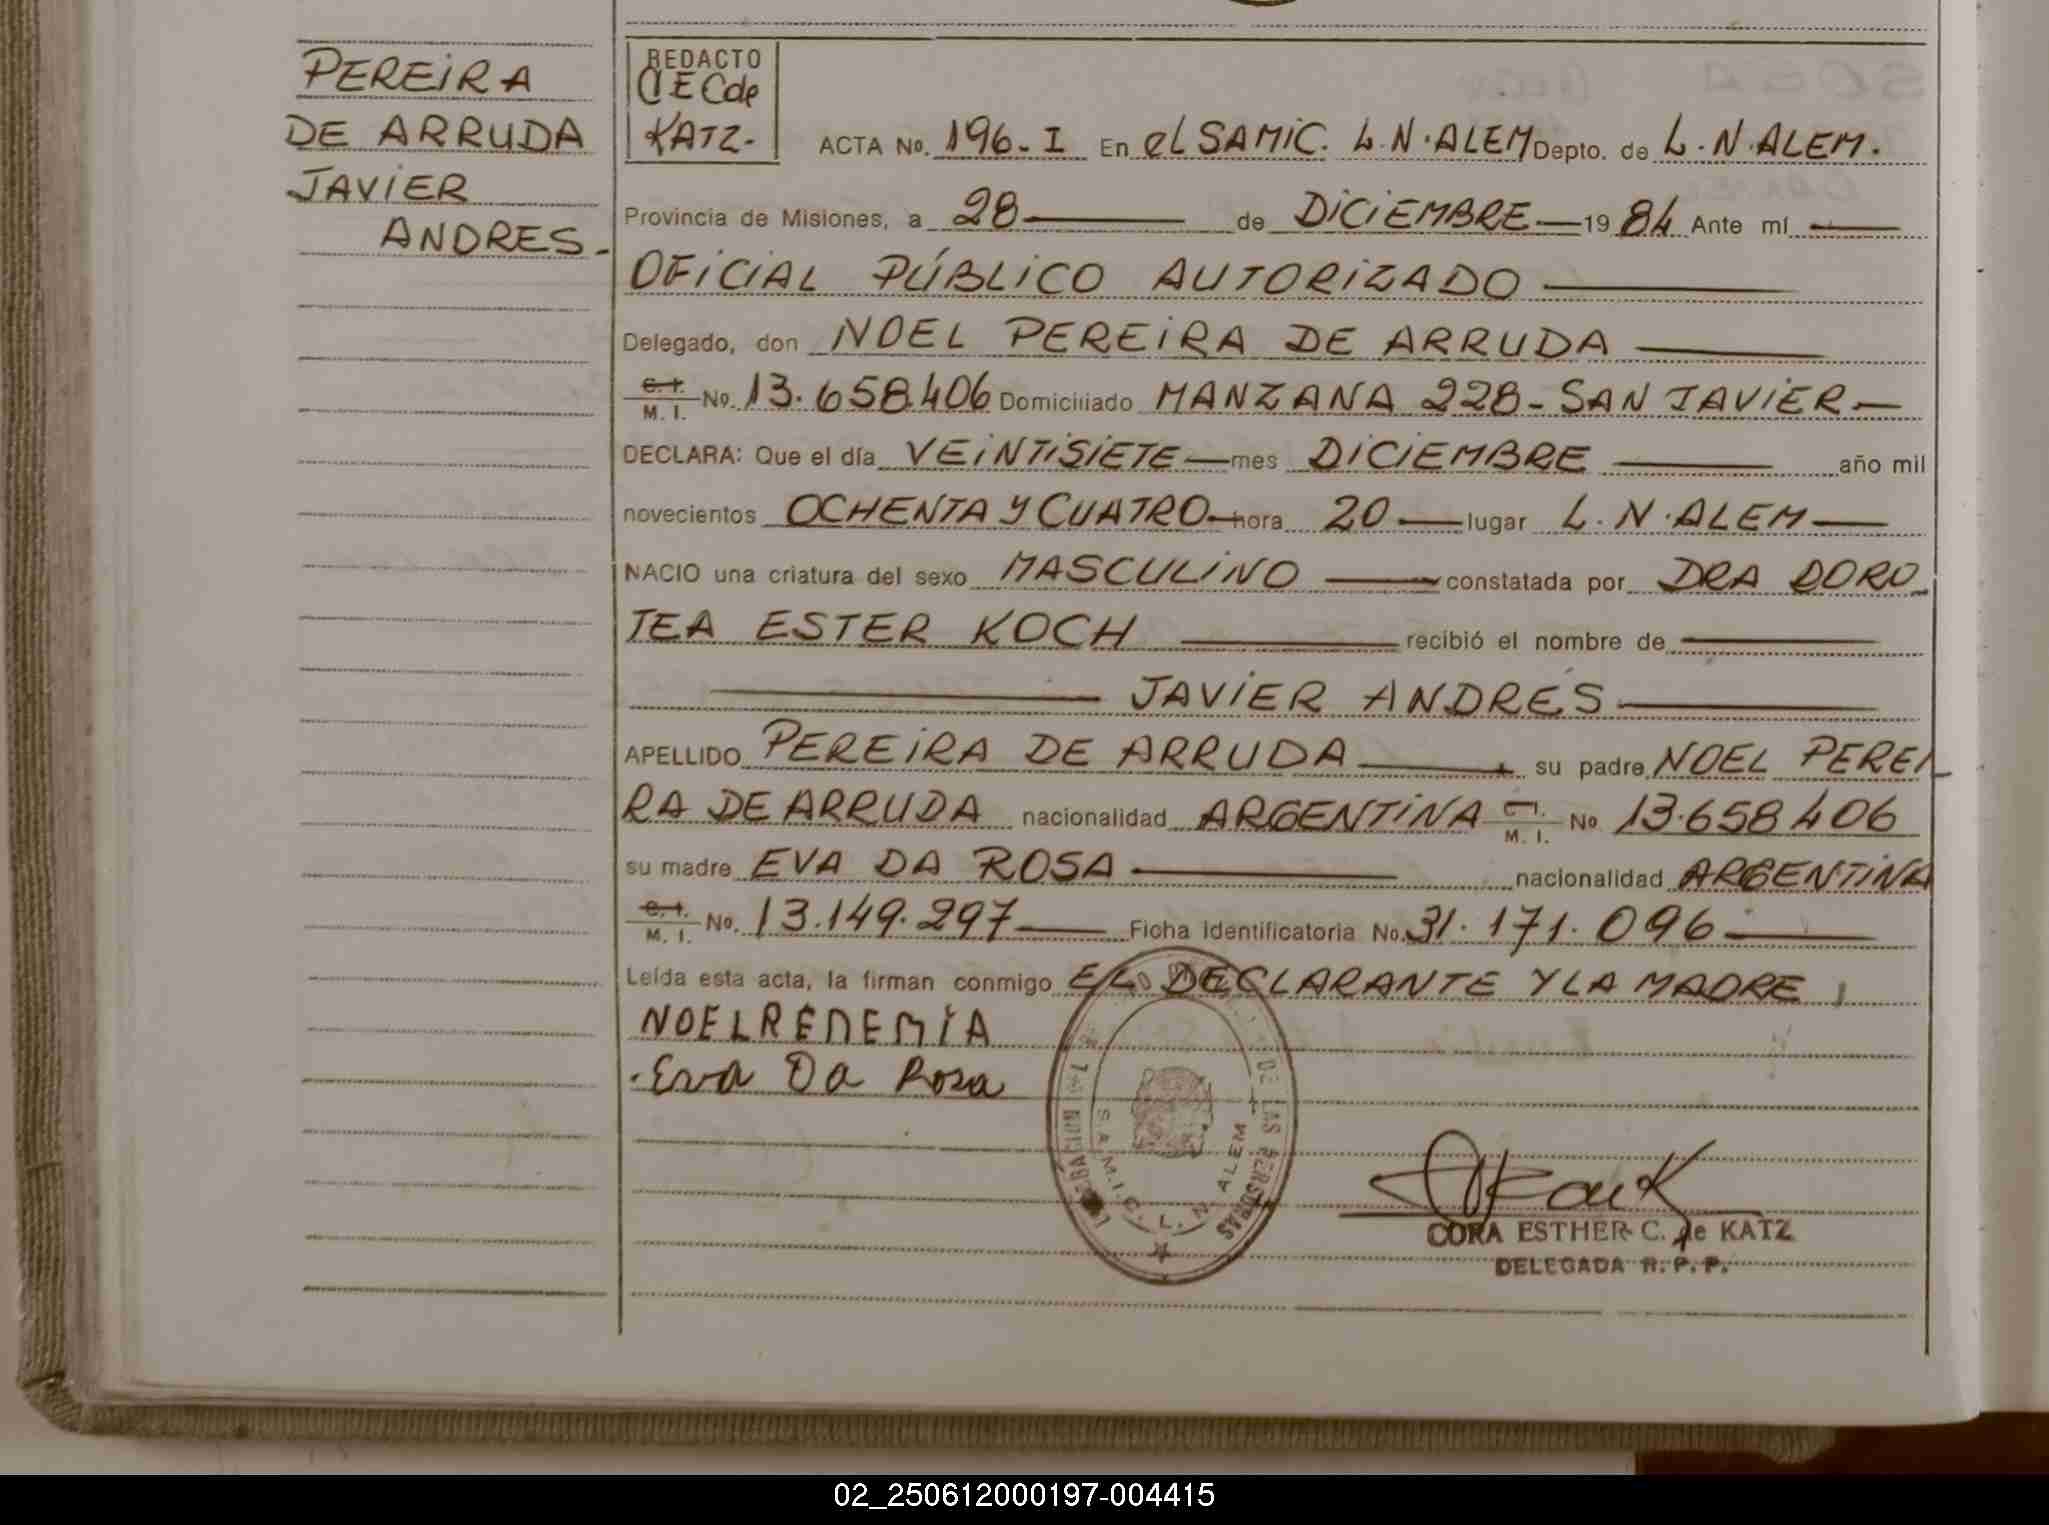 PEREIRA
DE ARRUDA
JAVIER
ANDRES.
REDACTO
CECde
KATZ.
ACTA No. 196-I En el SAMIC. L.N.ALEM Depto. de L.N.ALEM.
Provincia de Misiones, a 28 de DICIEMBRE 1984 Ante mí
OFICIAL PÚBLICO AUTORIZADO
Delegado, don NOEL PEREIRA DE ARRUDA
C. I. M. I. No. 13.658.406 Domiciliado MANZANA 228 - SAN JAVIER
DECLARA: Que el día VEINTISIETE mes DICIEMBRE año mil
novecientos OCHENTA Y CUATRO hora 20 lugar L.N.ALEM
NACIO una criatura del sexo MASCULINO constatada por DRA DORO
TEA ESTER KOCH recibió el nombre de
JAVIER ANDRÉS
APELLIDO PEREIRA DE ARRUDA su padre NOEL PEREI
RA DE ARRUDA nacionalidad ARGENTINA C. I. M. I. No 13.658406
su madre EVA DA ROSA nacionalidad ARGENTINA
C. I. M. I. No. 13.149.297 Ficha Identificatoria No. 31.171.096
Leída esta acta, la firman conmigo EL DECLARANTE Y LA MADRE
Eva Da Rosa
DE LAS PERSONAS
S.A.M.I.C. L. N. ALEM
CORA ESTHER C. de KATZ
DELEGADA R.P.P.
02_250612000197-004415